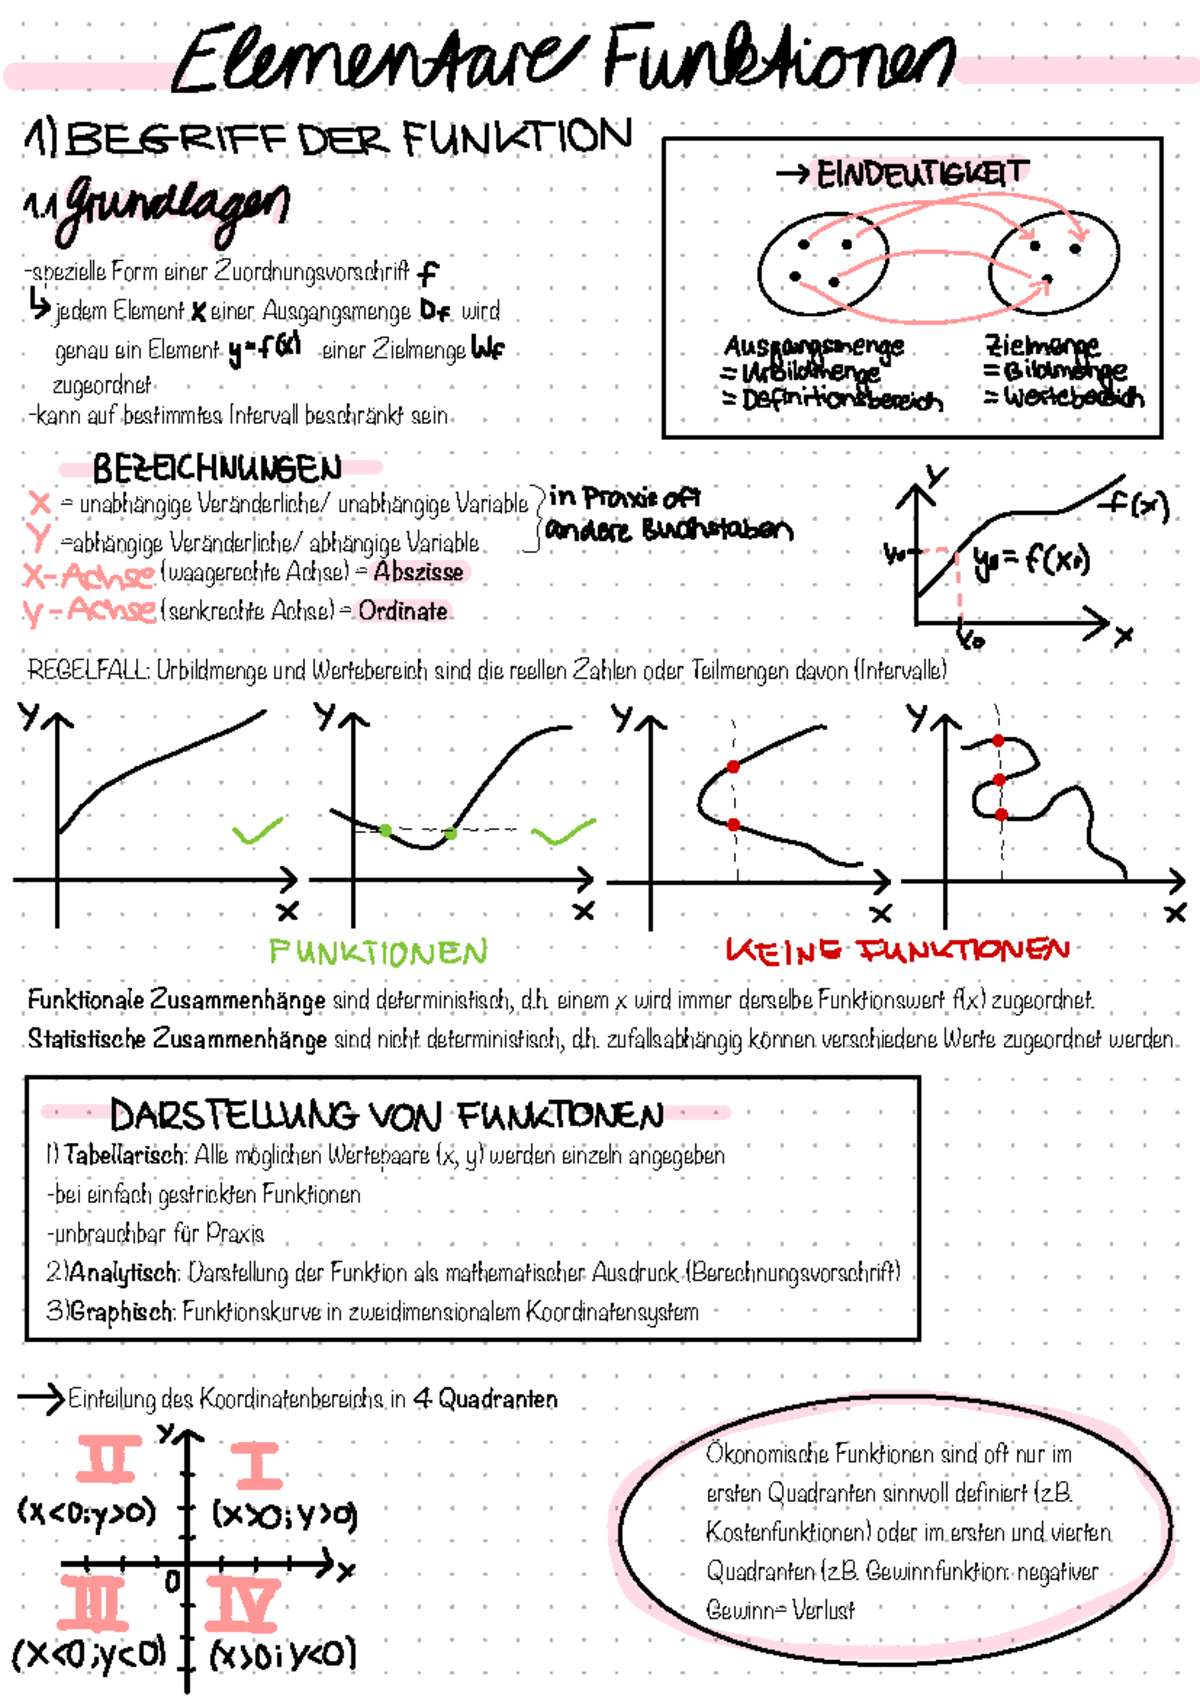 Elementare Funktionen
1) BEGRIFF DER FUNKTION
1.1 Grundlagen
-spezielle Form einer Zuordnungsvorschrift f
↳ jedem Element x einer Ausgangsmenge Df wird
genau ein Element y=f(x) einer Zielmenge Wf
zugeordnet
-kann auf bestimmtes Intervall beschränkt sein
→ EINDEUTIGKEIT
Ausgangsmenge
= Urbildmenge
= Definitionsbereich
Zielmenge
= Bildmenge
= Wertebereich
BEZEICHNUNGEN
X = unabhängige Veränderliche/ unabhängige Variable
Y =abhängige Veränderliche/ abhängige Variable
in Praxis oft
andere Buchstaben
X-Achse (waagerechte Achse) = Abszisse
y-Achse (senkrechte Achse) = Ordinate
y
f(x)
y₀
y₀ = f(x₀)
x₀
x
REGELFALL: Urbildmenge und Wertebereich sind die reellen Zahlen oder Teilmengen davon (Intervalle)
y y y y
x x x x
FUNKTIONEN
KEINE FUNKTIONEN
Funktionale Zusammenhänge sind deterministisch, d.h. einem x wird immer derselbe Funktionswert f(x) zugeordnet.
Statistische Zusammenhänge sind nicht deterministisch, d.h. zufallsabhängig können verschiedene Werte zugeordnet werden.
DARSTELLUNG VON FUNKTIONEN
1) Tabellarisch: Alle möglichen Wertepaare (x, y) werden einzeln angegeben
-bei einfach gestrickten Funktionen
-unbrauchbar für Praxis
2)Analytisch: Darstellung der Funktion als mathematischer Ausdruck (Berechnungsvorschrift)
3)Graphisch: Funktionskurve in zweidimensionalem Koordinatensystem
→ Einteilung des Koordinatenbereichs in 4 Quadranten
y
II I
(x<0;y>0) (x>0;y>0)
0 x
III IV
(x<0;y<0) (x>0;y<0)
Ökonomische Funktionen sind oft nur im
ersten Quadranten sinnvoll definiert (z.B.
Kostenfunktionen) oder im ersten und vierten
Quadranten (z.B. Gewinnfunktion: negativer
Gewinn= Verlust